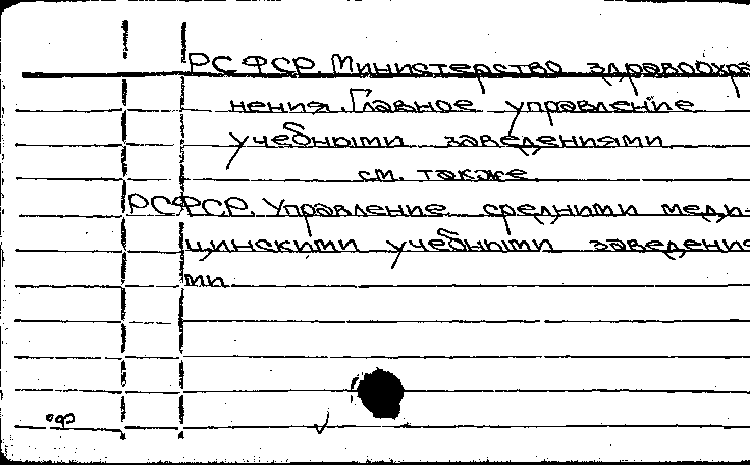 РСФСР. Министерство здравоохра
нения. Главное управление
учебными заведениями
см. также
РСФСР. Управление средними меди-
цинскими учебными заведение
ми.